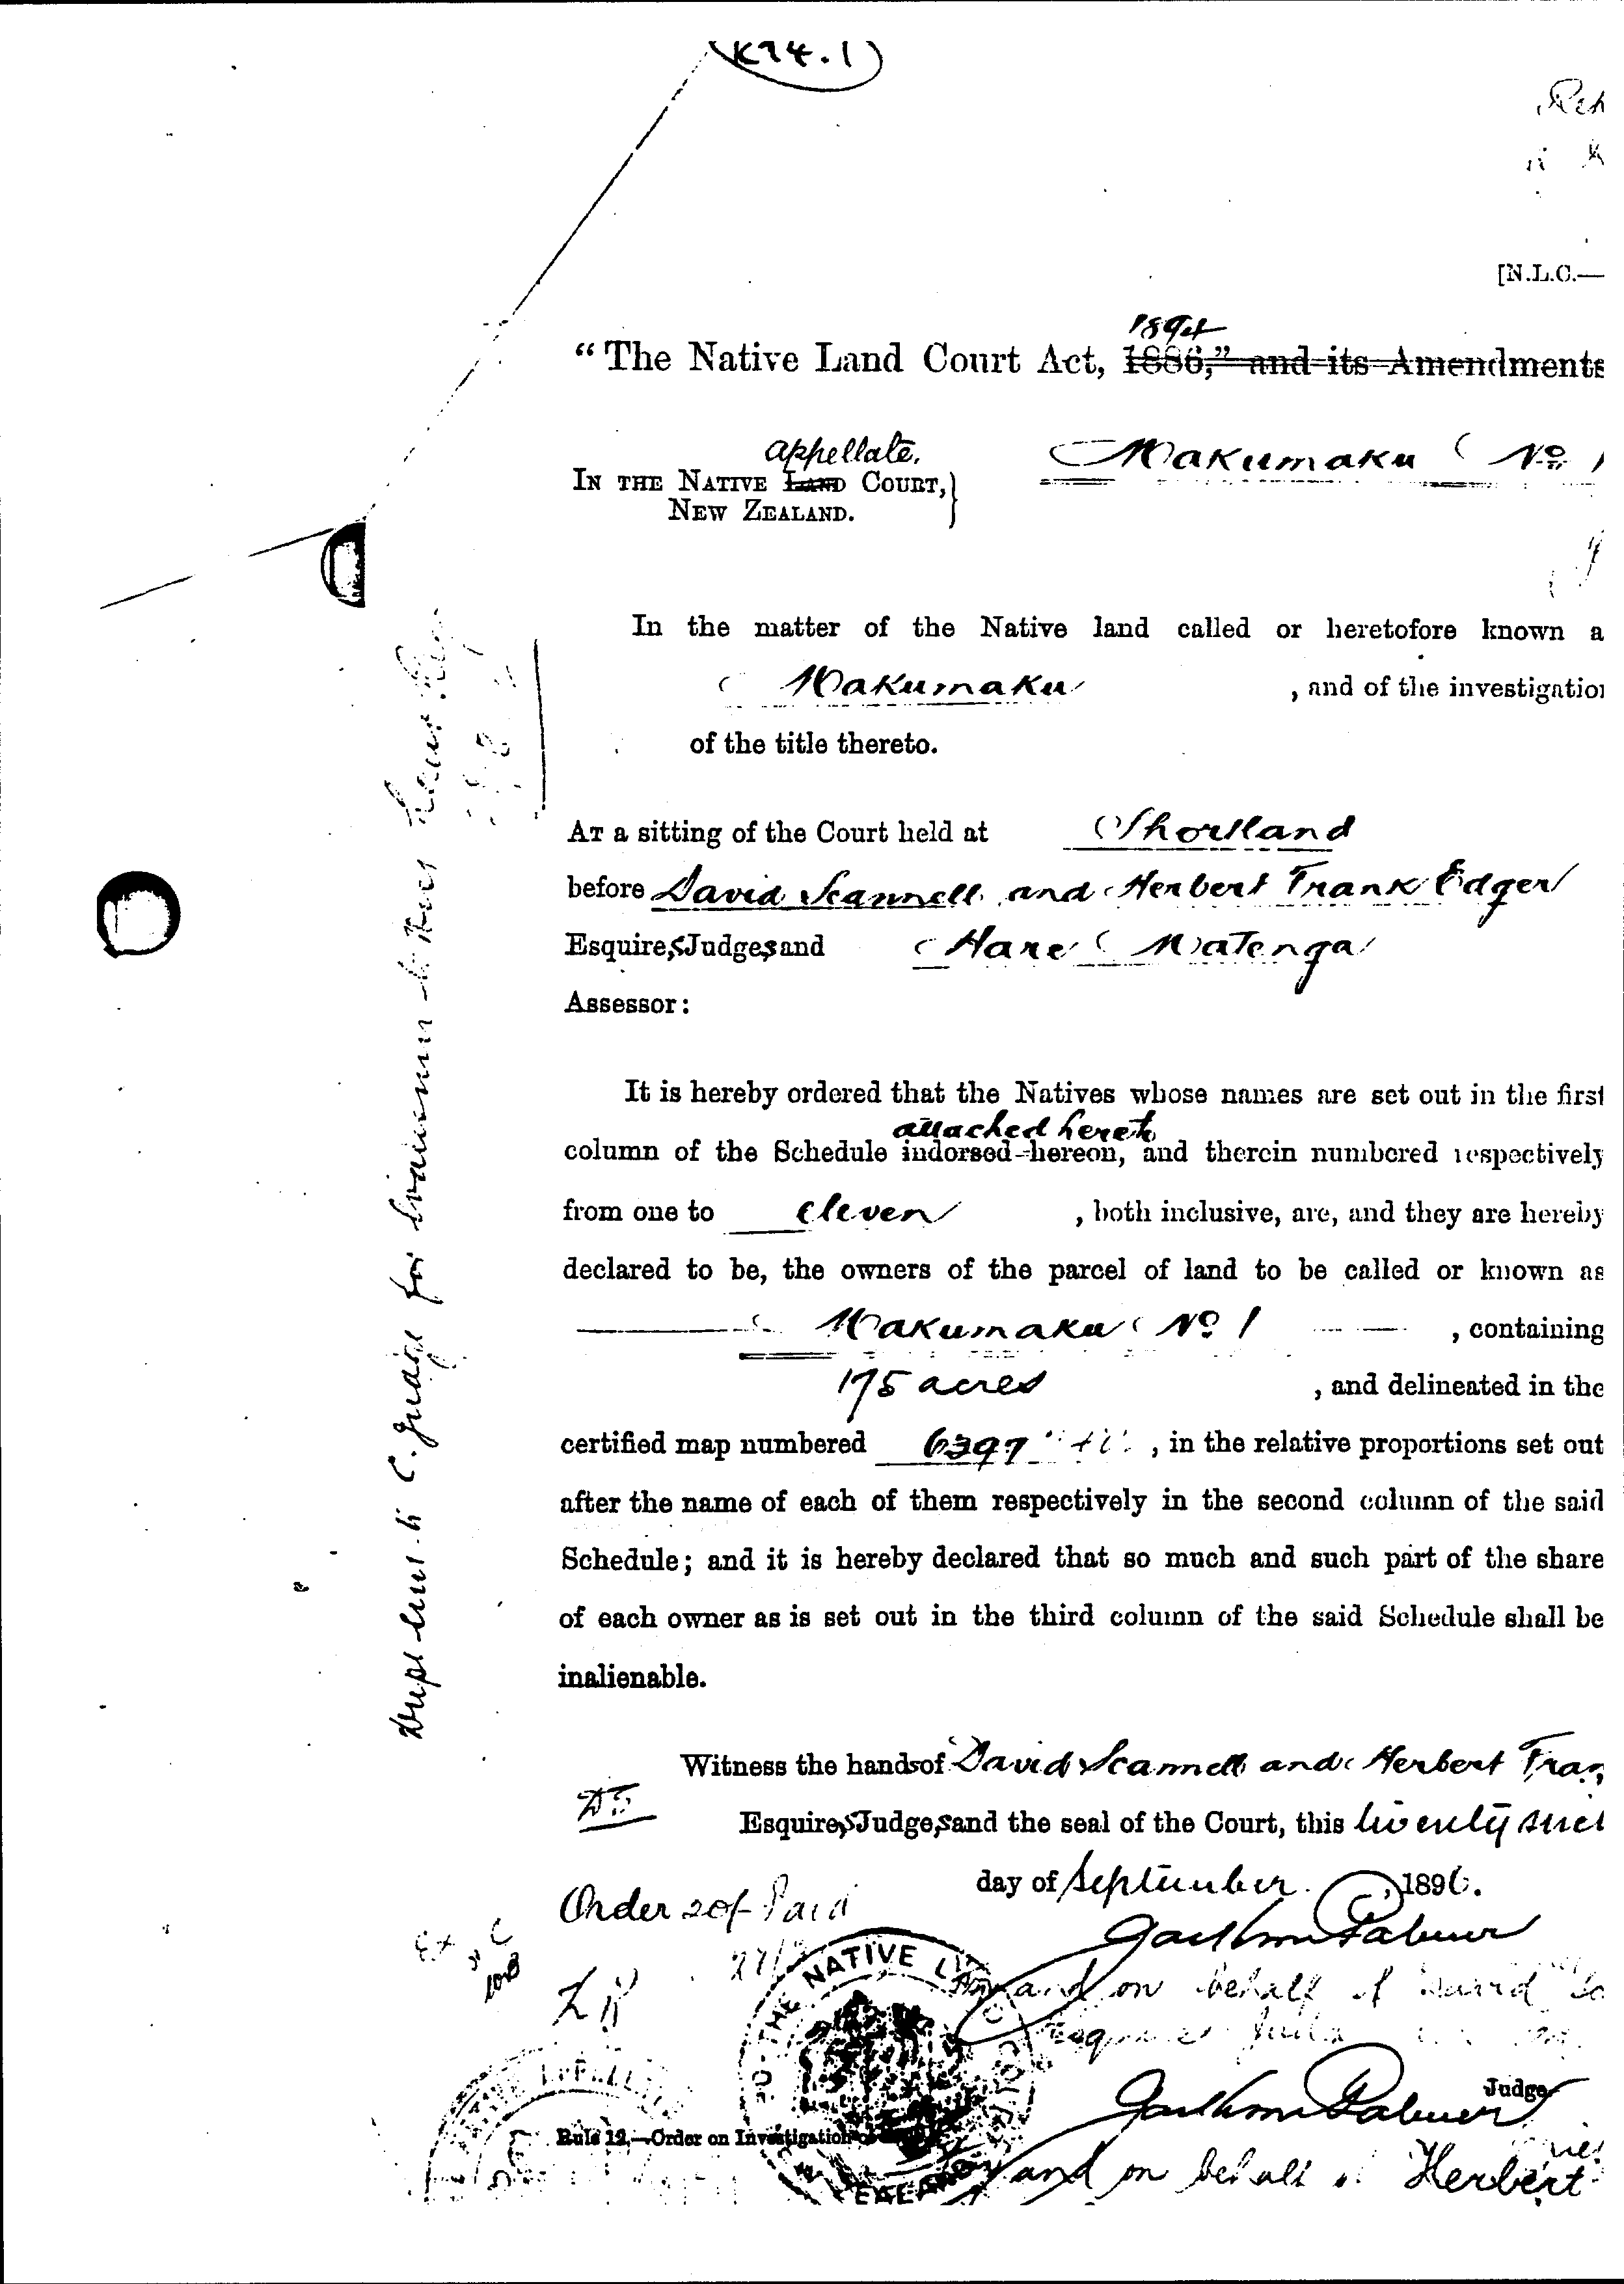 K94.1
[N.L.C.—
1894
"The Native Land Court Act, 1886," and its Amendments
Makumaku No 1
appellate.
IN THE NATIVE LAND COURT,
NEW ZEALAND.
In the matter of the Native land called or heretofore known a
Makumaku , and of the investigation
of the title thereto.
AT a sitting of the Court held at Shortland
before David Scannell and Herbert Frank Edger
Esquires, Judges, and Hare Matenga
Assessor:
It is hereby ordered that the Natives whose names are set out in the first
attached hereto
column of the Schedule indorsed hereon, and therein numbered respectively
from one to eleven , both inclusive, are, and they are hereby
declared to be, the owners of the parcel of land to be called or known as
Makumaku No 1 , containing
175 acres , and delineated in the
certified map numbered 6397 , in the relative proportions set out
after the name of each of them respectively in the second column of the said
Schedule; and it is hereby declared that so much and such part of the share
of each owner as is set out in the third column of the said Schedule shall be
inalienable.
Witness the hands of David Scannell and Herbert Fran
Esquires, Judges, and the seal of the Court, this twenty
day of September , 1896.
Order 20/- Paid
and on behalf of David
Judge
Rule 12.—Order on Investigation of
and on behalf of Herbert
Dupl sent to C. Judge for